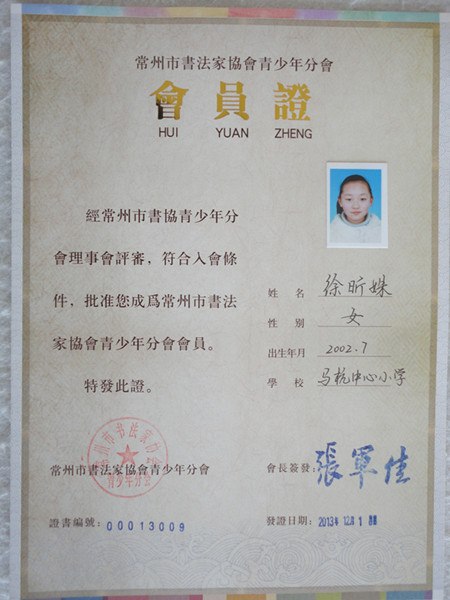 常州市書法家協會青少年分會
會員證
HUI YUAN ZHENG
經常州市書協青少年分
會理事會評審，符合入會條
件，批准您成爲常州市書法
家協會青少年分會會員。
特發此證。
姓名 徐昕姝
性別 女
出生年月 2002.7
學校 马杭中心小学
常州市书法家协会
青少年分会
常州市書法家協會青少年分會
會長簽發：張軍佳
證書編號：00013009
發證日期：2013年12月1